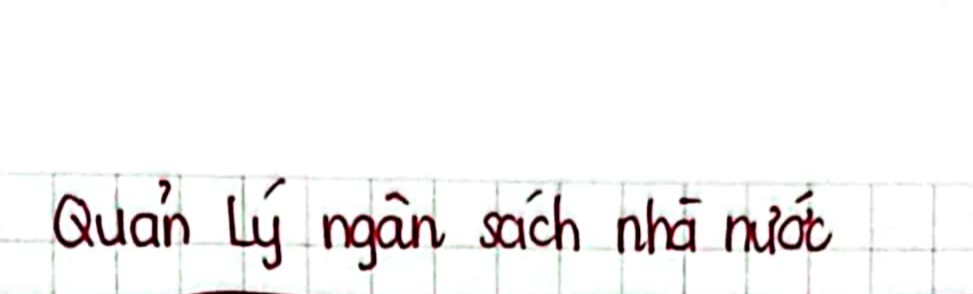 Quản Lý ngân sách nhà nước